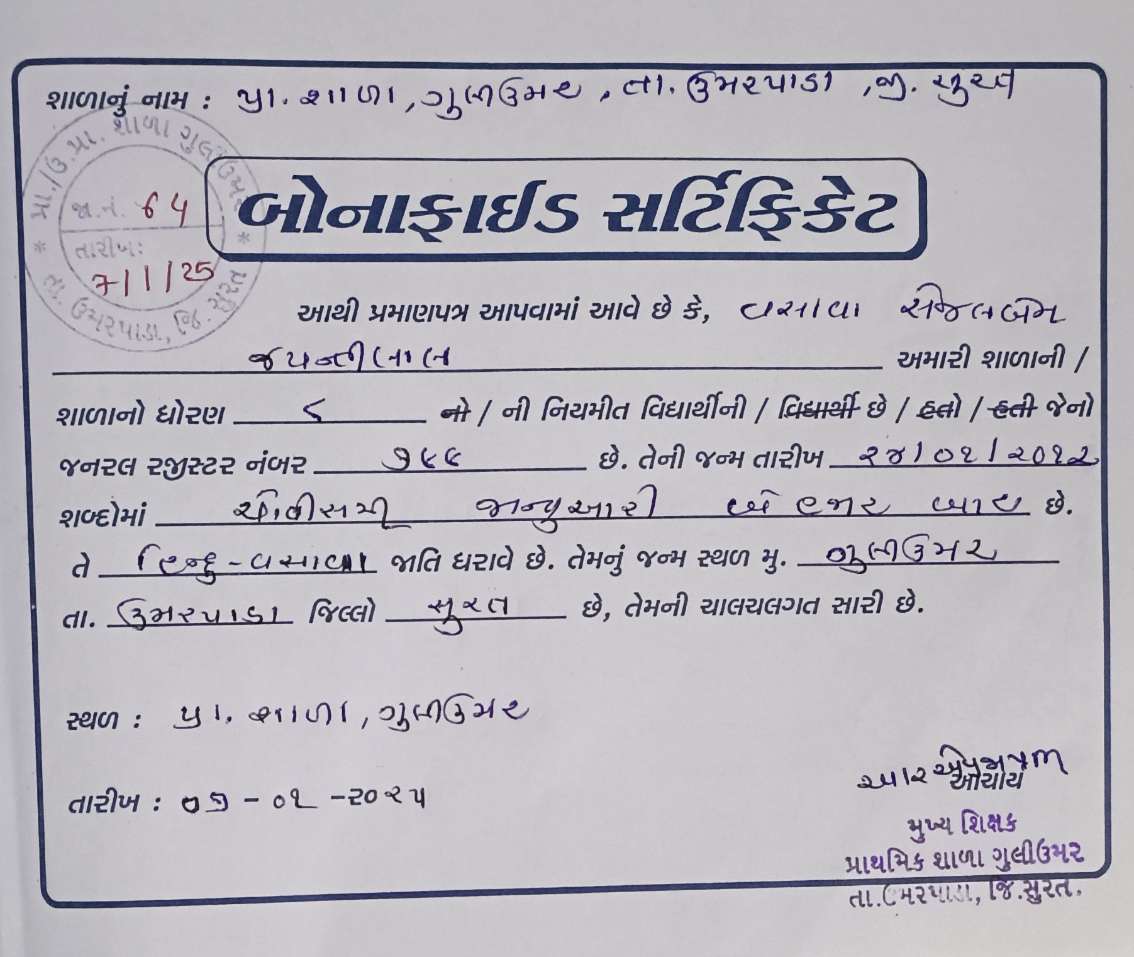 શાળાનું નામ : પ્રા. શાળા, ગુલીઉમર, તા. ઉમરપાડા, જી. સુરત
પ્રા./ઉ.પ્રા. શાળા ગુલીઉમર
જા.નં. 64
તારીખ:
7/1/25
તા. ઉમરપાડા, જિ. સુરત
બોનાફાઈડ સર્ટિફિકેટ
આથી પ્રમાણપત્ર આપવામાં આવે છે કે, વસાવા સેજલબેન
જયન્તીલાલ અમારી શાળાની /
શાળાનો ધોરણ ૮ નો / ની નિયમીત વિદ્યાર્થીની / વિદ્યાર્થી છે / હતો / હતી જેનો
જનરલ રજીસ્ટર નંબર ૧૯૯ છે. તેની જન્મ તારીખ ૨૪/૦૧/૨૦૧૨
શબ્દોમાં ચોવીસમી જાન્યુઆરી બે હજાર બાર છે.
તે હિન્દુ - વસાવા જાતિ ધરાવે છે. તેમનું જન્મ સ્થળ મુ. ગુલીઉમર
તા. ઉમરપાડા જિલ્લો સુરત છે, તેમની ચાલચલગત સારી છે.
સ્થળ : પ્રા. શાળા, ગુલીઉમર
તારીખ : ૦૭ - ૦૧ - ૨૦૨૫
આચાર્ય
મુખ્ય શિક્ષક
પ્રાથમિક શાળા ગુલીઉમર
તા.ઉમરપાડા, જિ.સુરત.